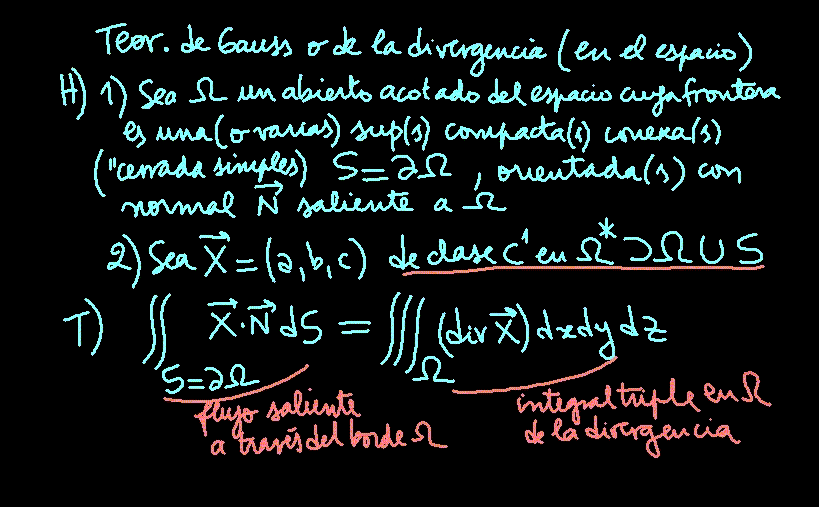 Teor. de Gauss o de la divergencia (en el espacio)
H) 1) Sea Ω un abierto acotado del espacio cuya frontera
es una (o varias) sup(s) compacta(s) conexa(s)
("cerrada simples) S=∂Ω, orientada(s) con
normal N⃗ saliente a Ω
2) Sea X⃗ = (a,b,c) de clase C¹ en Ω* ⊃ Ω ∪ S
T) ∬_{S=∂Ω} X⃗·N⃗ dS = ∭_Ω (div X⃗) dxdydz
flujo saliente
a través del borde Ω
integral triple en Ω
de la divergencia